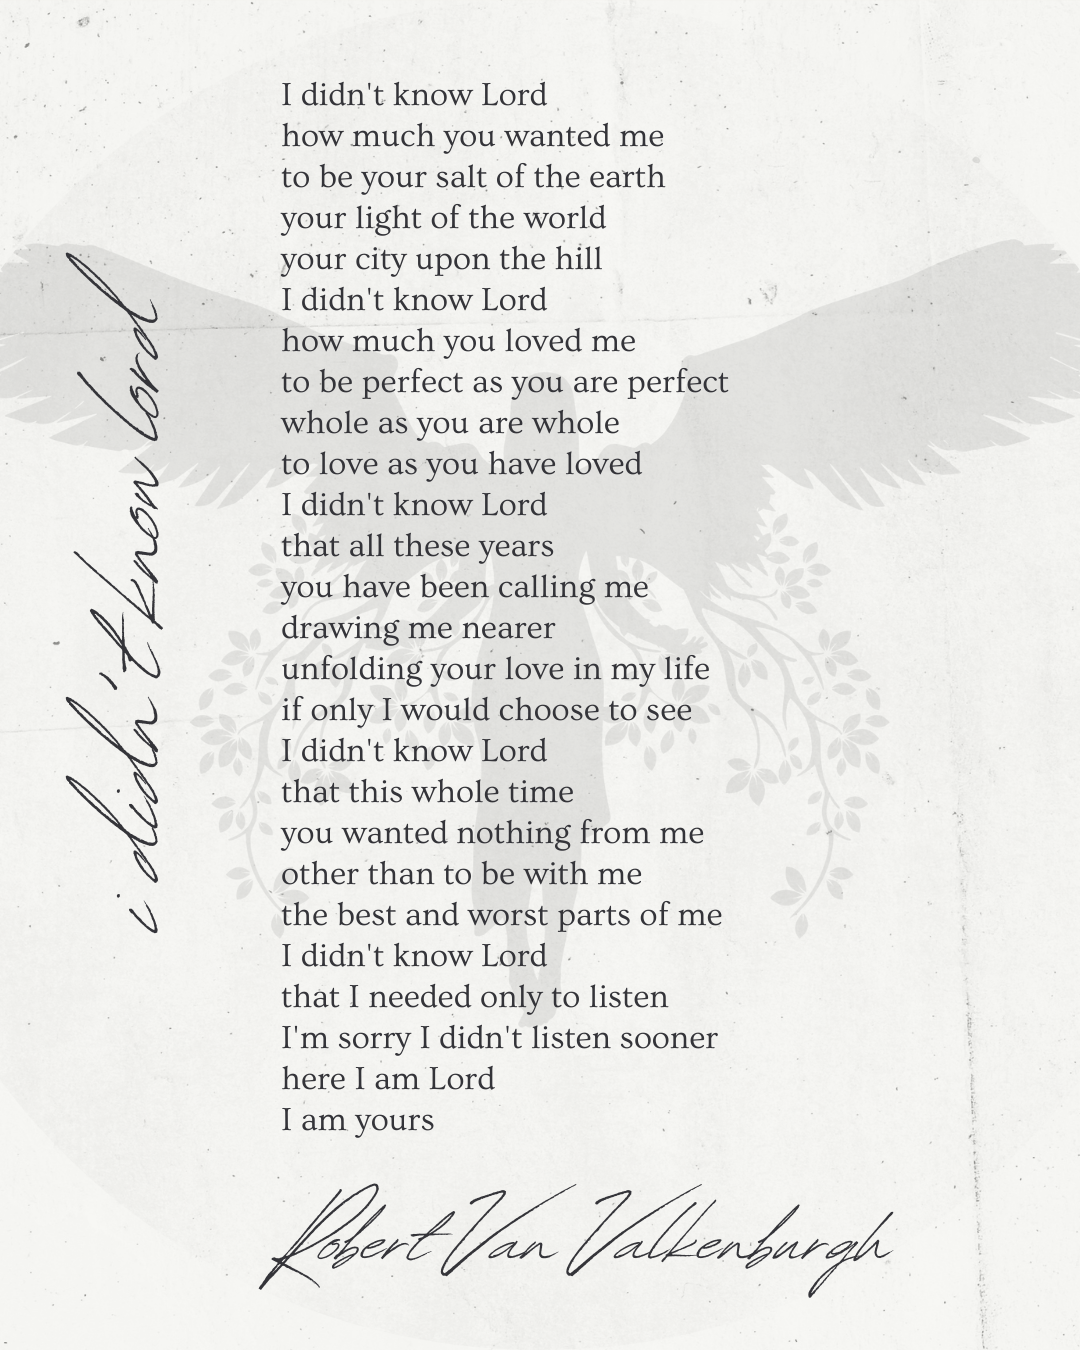 i didn't know lord
I didn't know Lord
how much you wanted me
to be your salt of the earth
your light of the world
your city upon the hill
I didn't know Lord
how much you loved me
to be perfect as you are perfect
whole as you are whole
to love as you have loved
I didn't know Lord
that all these years
you have been calling me
drawing me nearer
unfolding your love in my life
if only I would choose to see
I didn't know Lord
that this whole time
you wanted nothing from me
other than to be with me
the best and worst parts of me
I didn't know Lord
that I needed only to listen
I'm sorry I didn't listen sooner
here I am Lord
I am yours
Robert Van Valkenburgh